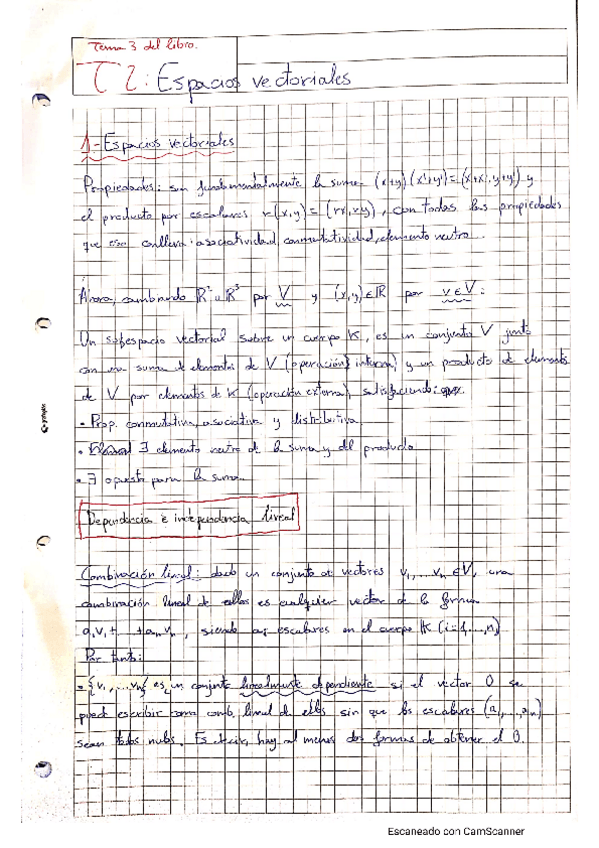 Tema 3 del libro.
T2: Espacios vectoriales
1- Espacios vectoriales
Propiedades: son fundamentalmente la suma (x+y)(x'+y')=(x+x', y+y') y
el producto por escalares r(x,y) = (rx,ry), con todas las propiedades
que eso conlleva: asociatividad, conmutatividad, elemento neutro...
Ahora, cambiando ℝ² u ℝ³ por V y (x,y)∈ℝ por v∈V:
Un subespacio vectorial sobre un cuerpo K, es un conjunto V junto
con una suma de elementos de V (operación interna) y un producto de elementos
de V por elementos de K (operación externa), satisfaciendo:
- Prop. conmutativa, asociativa y distributiva
- ∃ elemento neutro de la suma y del producto
- ∃ opuesto para la suma
Dependencia e independencia lineal
Combinación lineal: dado un conjunto de vectores v₁,...vₙ∈V, una
combinación lineal de ellos es cualquier vector de la forma
a₁v₁+ +aₙvₙ, siendo ai escalares en el cuerpo K (i=1,...,n)
Por tanto:
- {v₁,...vₙ} es un conjunto linealmente dependiente si el vector 0 se
puede escribir como comb. lineal de ellos sin que los escalares (a₁,...,aₙ)
sean todos nulos. Es decir, hay al menos dos formas de obtener el 0.
Escaneado con CamScanner